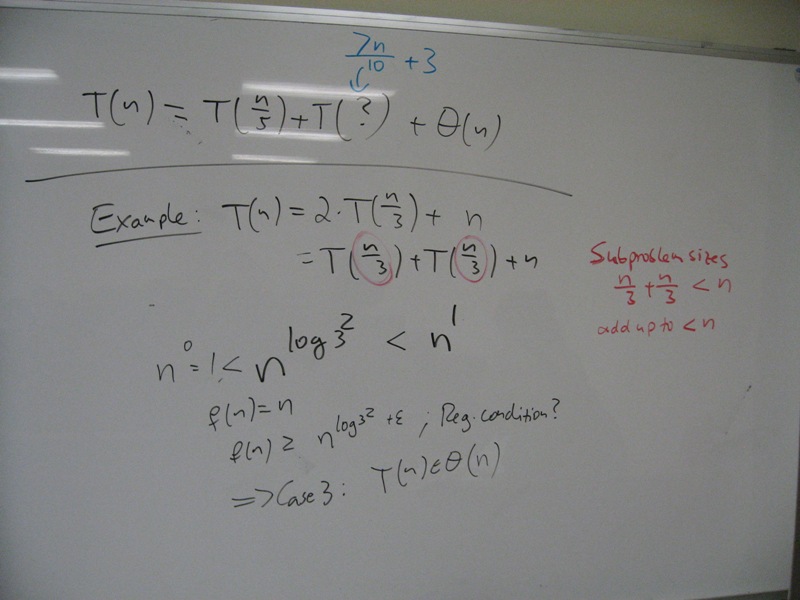 7n/10 + 3
T(n) = T(n/5) + T(?) + Θ(n)
Example: T(n) = 2·T(n/3) + n
= T(n/3) + T(n/3) + n
Subproblem sizes
n/3 + n/3 < n
add up to < n
n^0 = 1 < n^log_3 2 < n^1
f(n) = n
f(n) ≥ n^log_3 2 + ε ; Reg. condition?
=> Case 3: T(n) ∈ Θ(n)